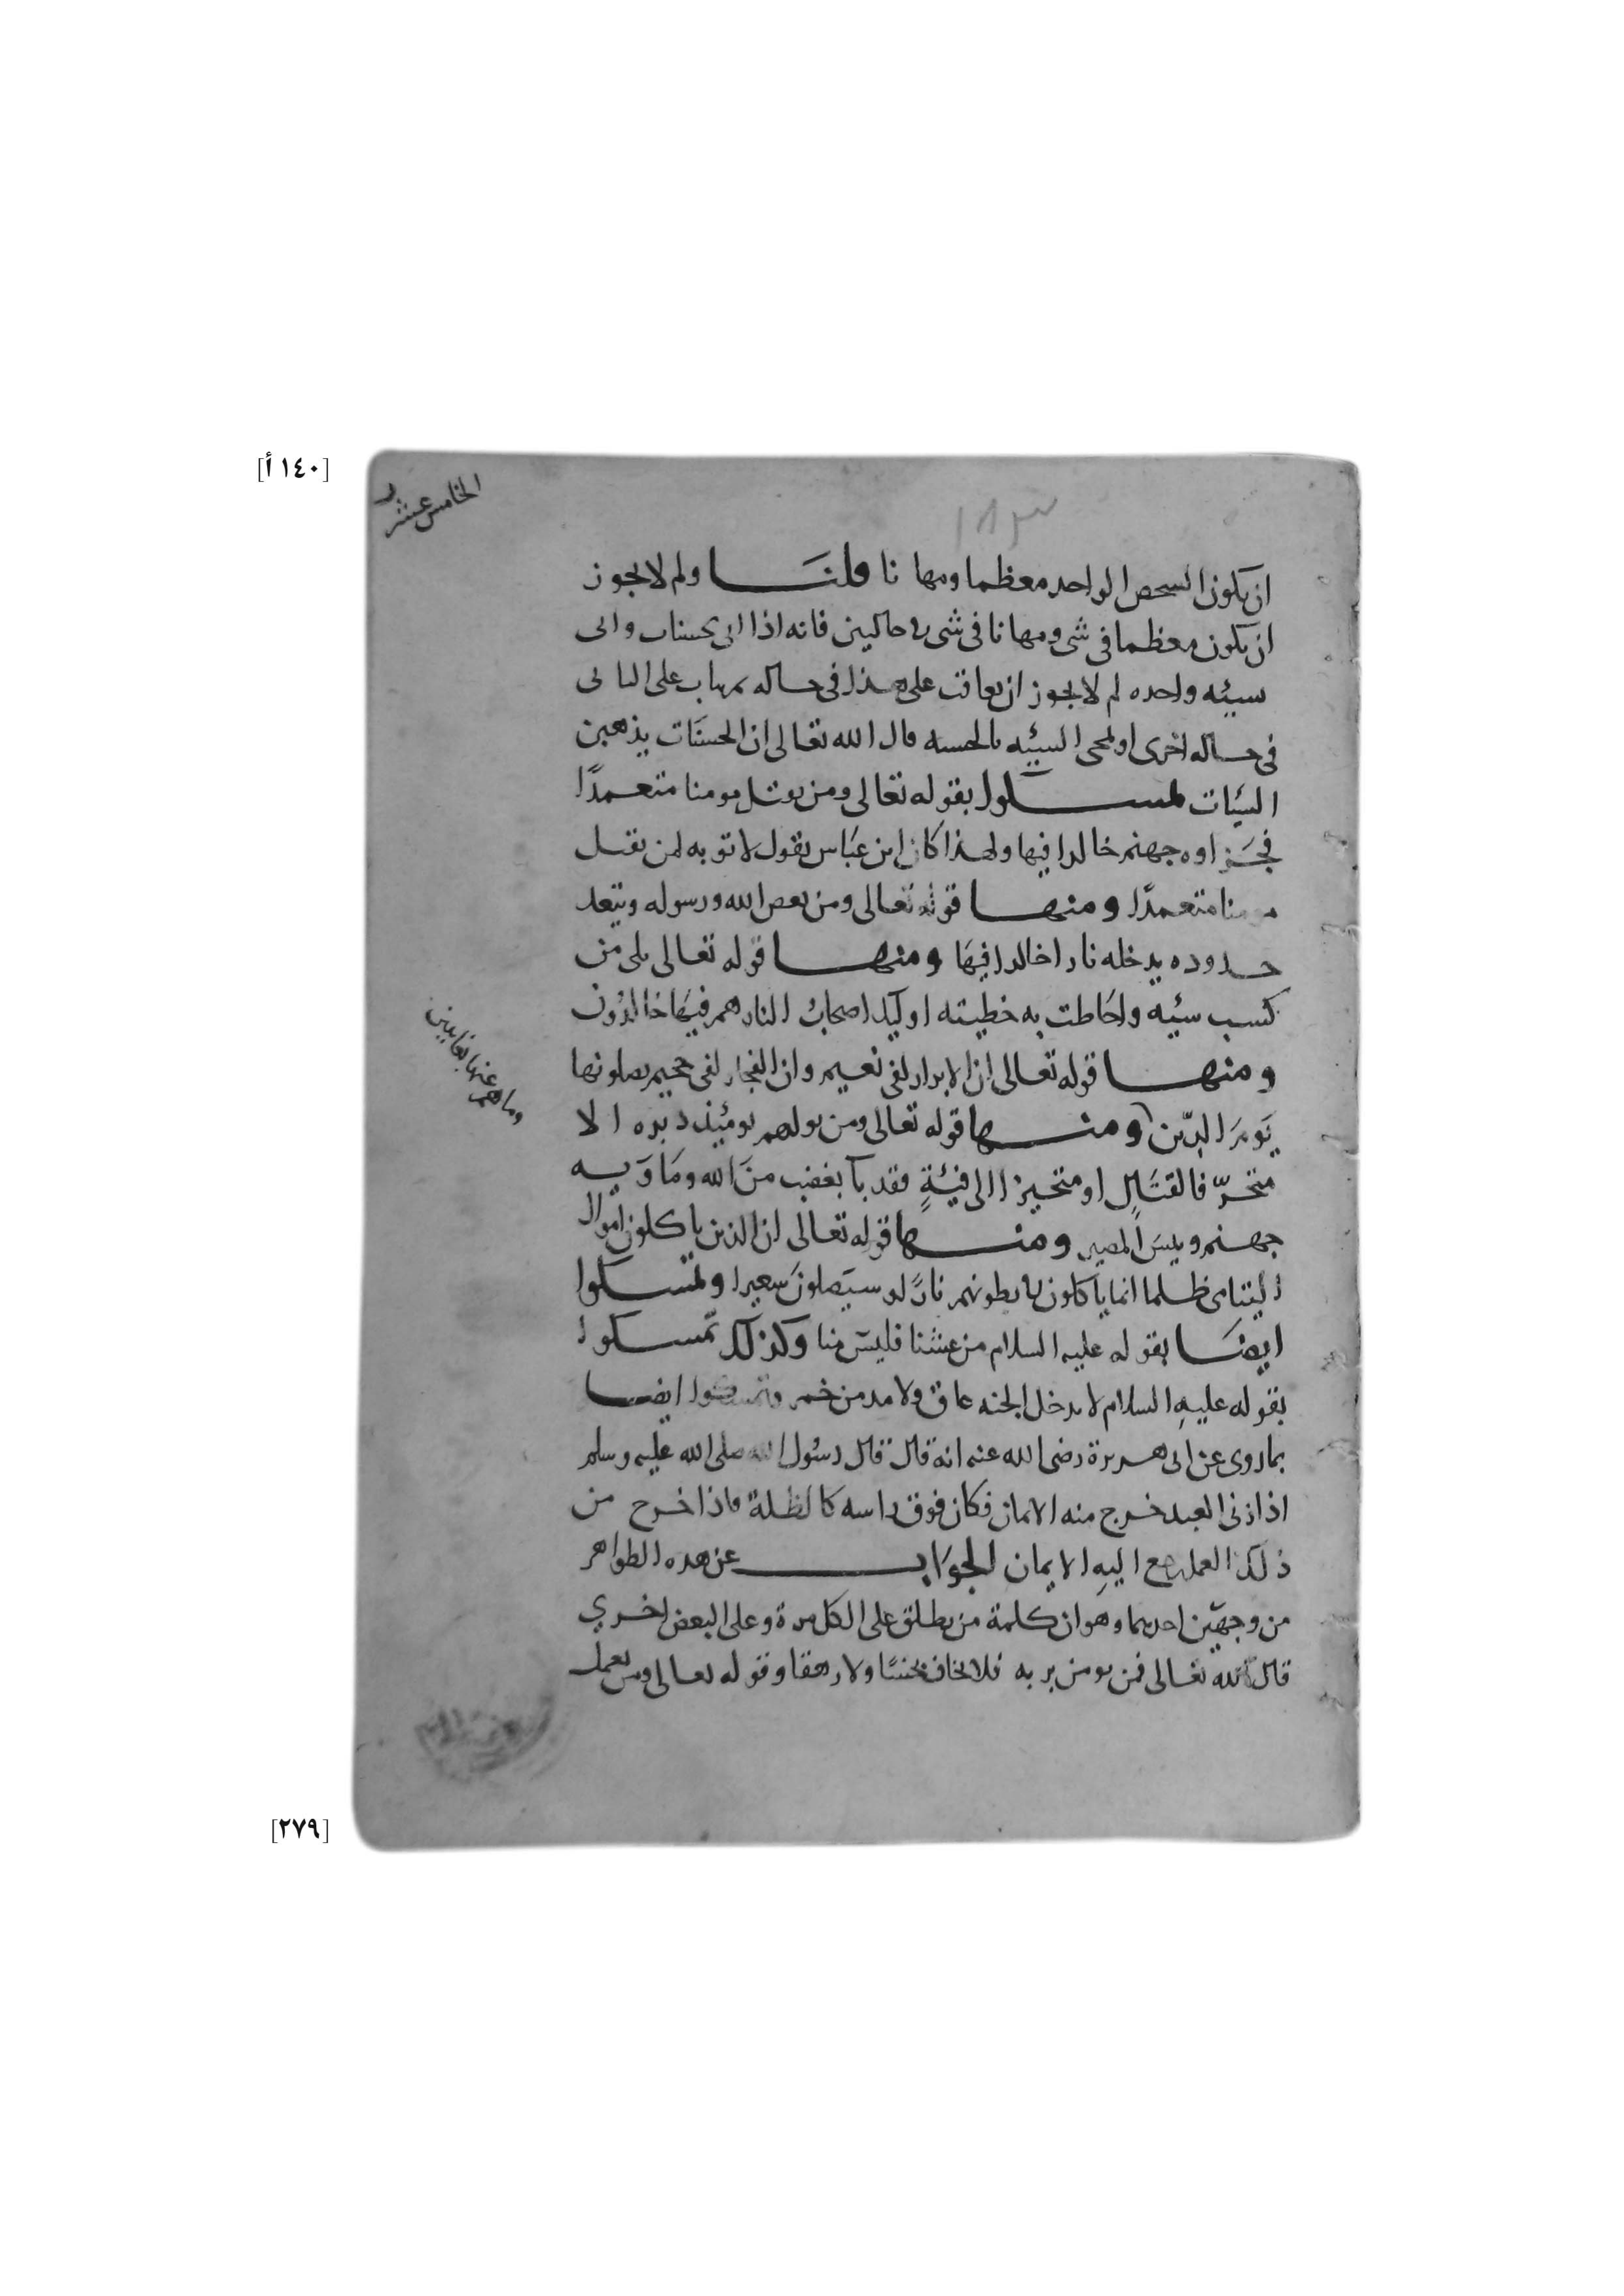 [١٤٠ أ]
الخامس عشر
١٨٣
ان يكون الشخص الواحد معظما ومهانا قلنا ولم لا يجوز
ان يكون معظما في شي ومهانا في شي في حالين فانه اذا اتى بحسنات واتى
سيئه واحده لم لا يجوز ان يعاقب على هذا في حاله ثم يثاب على الباقي
في حاله اخرى او تمحى السيئه بالحسنه قال الله تعالى ان الحسنات يذهبن
السيئات تمسكوا بقوله تعالى ومن يقتل مومنا متعمدًا
فجزاوه جهنم خالدا فيها ولهذا كان ابن عباس يقول لا توبه لمن يقتل
مومنا متعمدًا ومنها قوله تعالى ومن يعص الله ورسوله ويتعد
حدوده يدخله نارا خالدا فيها ومنها قوله تعالى بلى من
كسب سيئه واحاطت به خطيئته اوليك اصحاب النار هم فيها خالدون
ومنها قوله تعالى ان الابرار لفي نعيم وان الفجار لفي جحيم يصلونها
يوم الدين ومنها قوله تعالى ومن يولهم يومئذ دبره الا
وما هم عنها بغايبين
متحرّفا لقتال او متحيزا الى فئيةٍ فقد باَ بغضب من الله وماويه
جهنم وبيس المصير ومنها قوله تعالى ان الذين ياكلون اموال
اليتامى ظلما انما ياكلون في بطونهم نارًا وسيصلون سعيرا وتمسكوا
ايضا بقوله عليه السلام من غشنا فليس منا وكذلك تمسكوا
بقوله عليهِ السلام لا يدخل الجنه عاق ولا مدمن خمر وتمسكوا ايضا
بما روى عن ابي هريرة رضي الله عنه انه قال قال رسول الله صلى الله عليه وسلم
اذا زنى العبد خرج منه الايمان فكان فوق راسه كالظلة فاذا خرج من
ذلك العمل رجع اليهِ الايمان الجواب عن هذه الظواهر
من وجهين احدهما وهو ان كلمة من يطلق على الكل مرة وعلى البعض اخري
قال الله تعالى فمن يومن بربه فلا يخاف بخسًا ولا رهقا وقوله تعالى ومن يعمل
[٢٧٩]